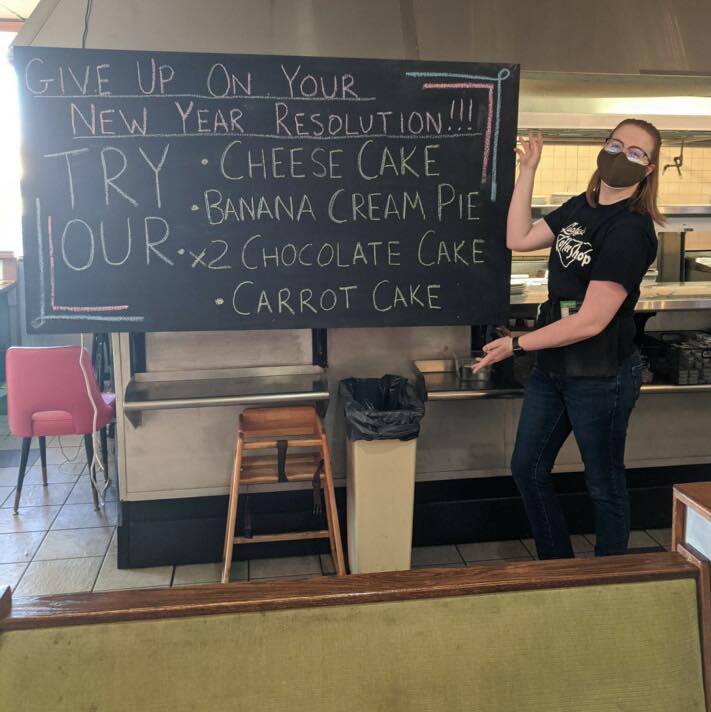 GIVE UP ON YOUR
NEW YEAR RESOLUTION!!!
TRY
OUR
• CHEESE CAKE
• BANANA CREAM PIE
• x2 CHOCOLATE CAKE
• CARROT CAKE
Coffee Shop